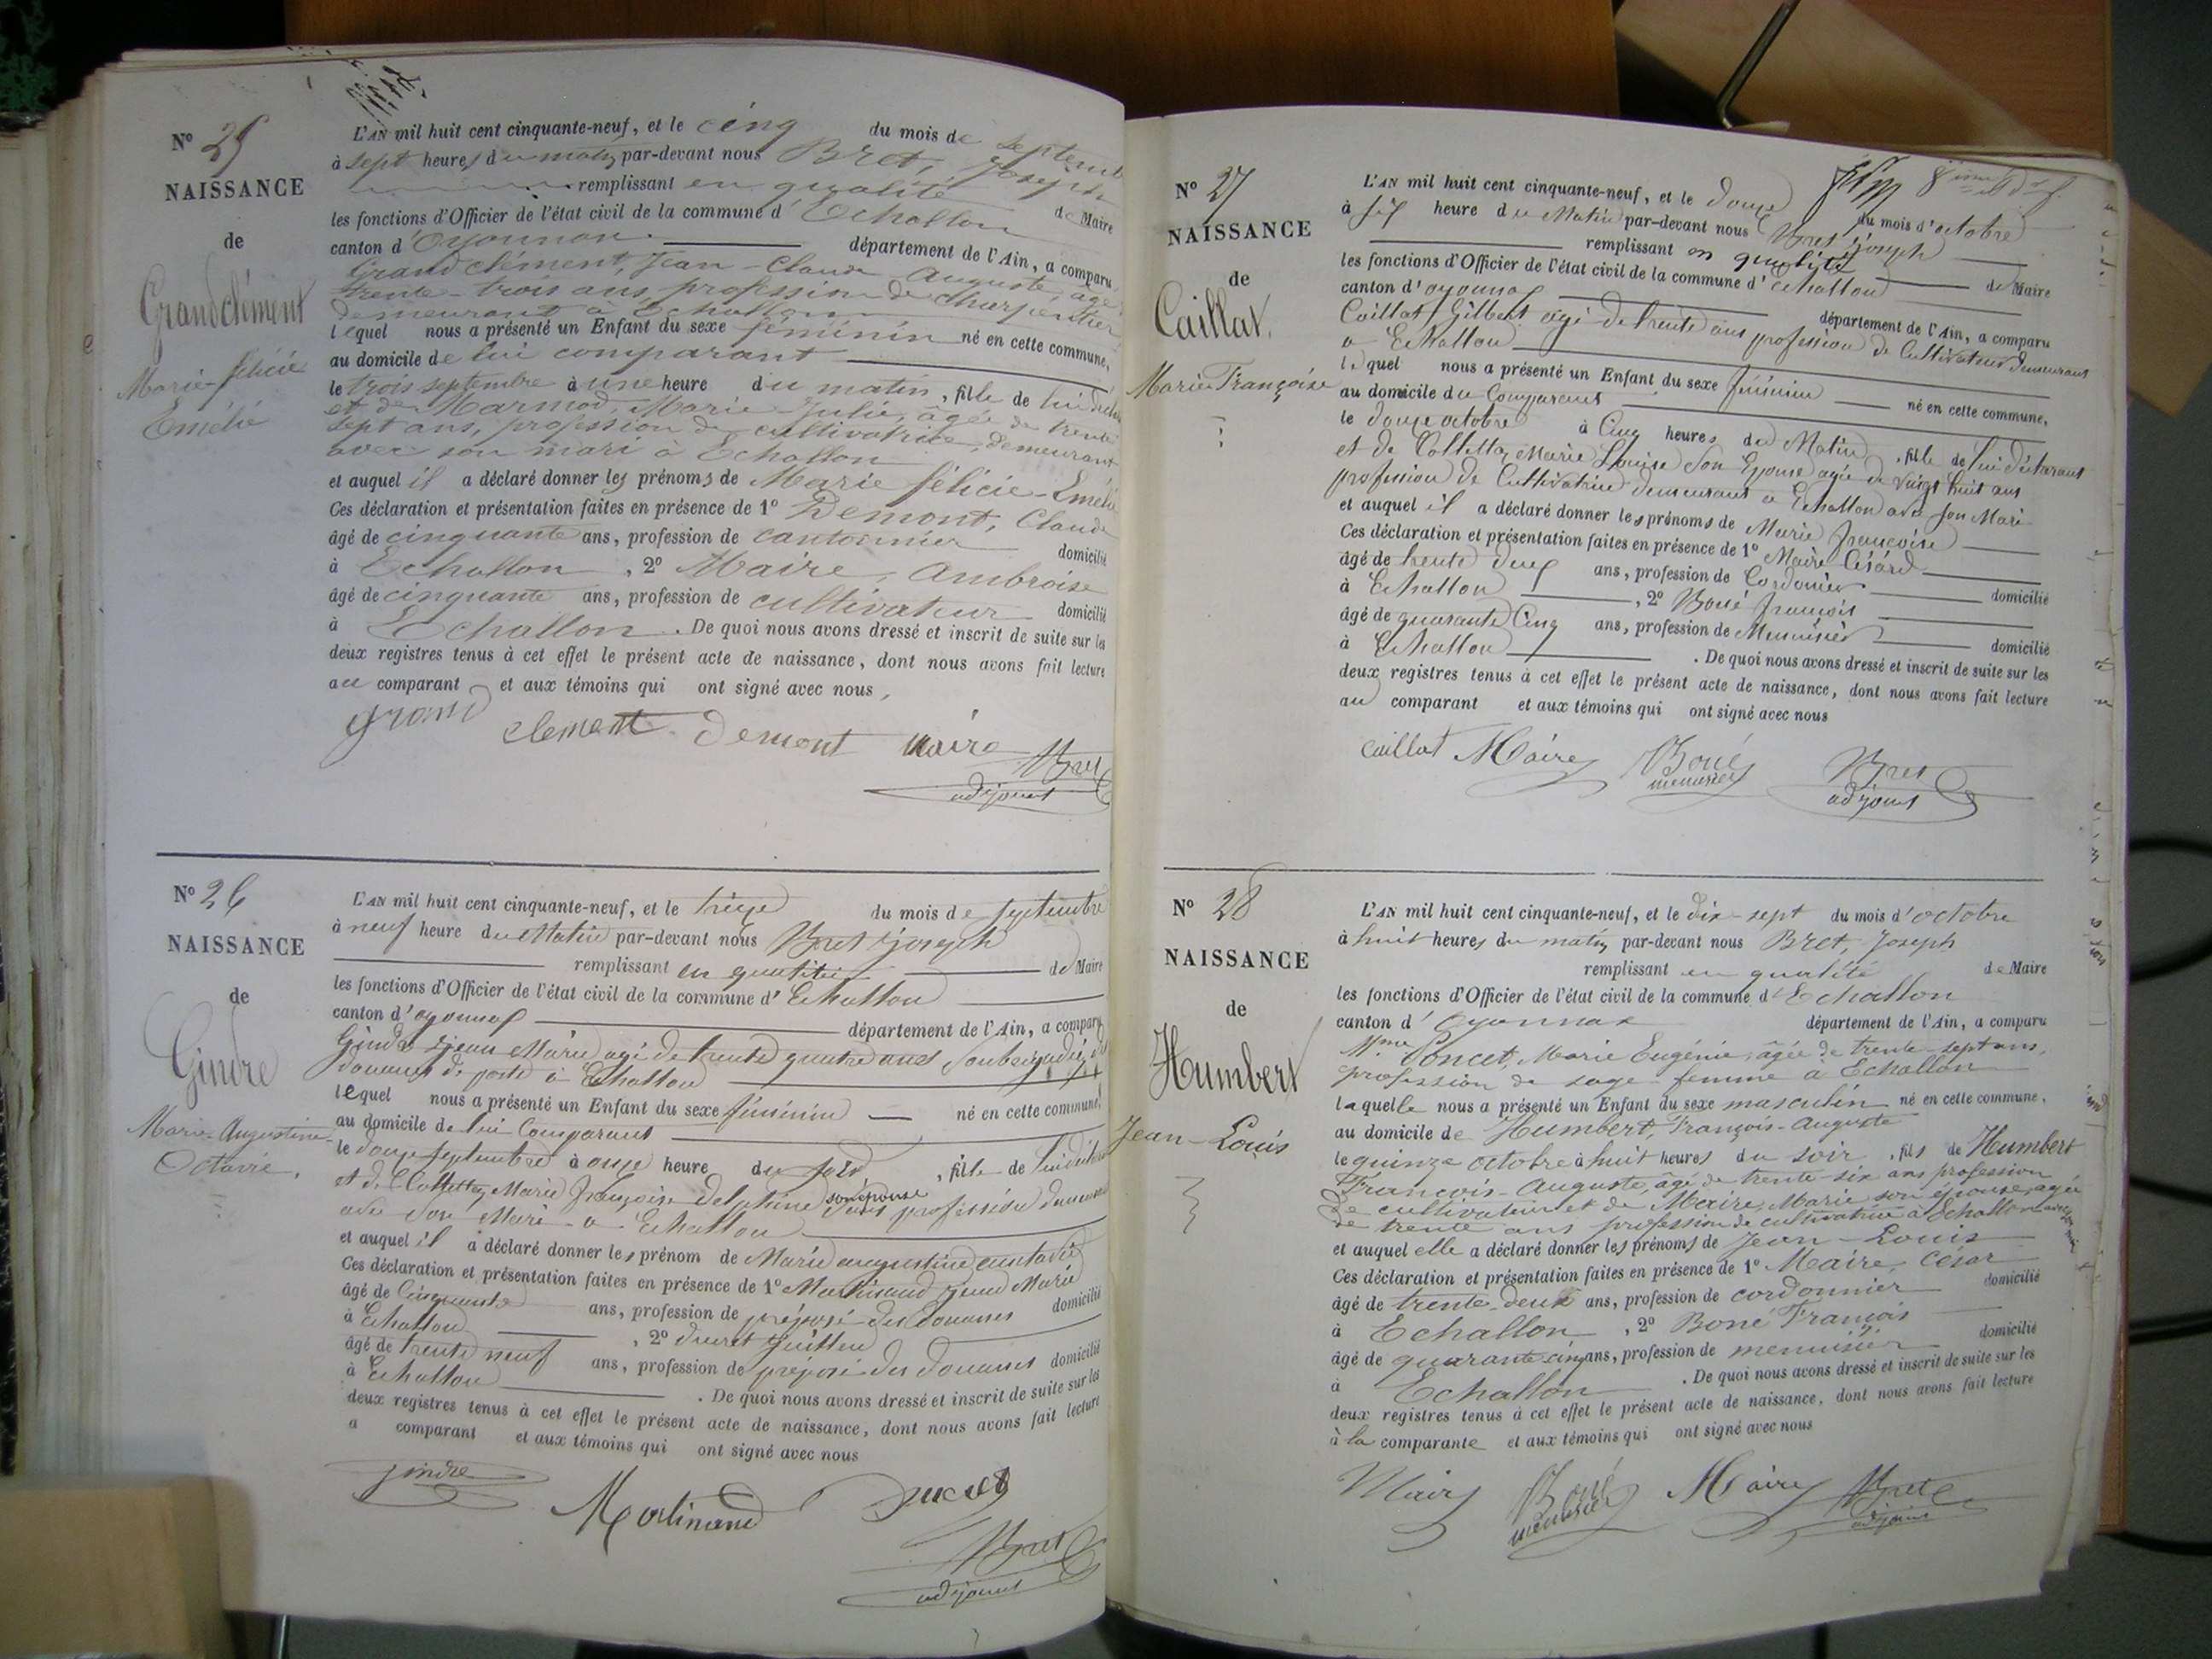 N° 25
NAISSANCE
de
Grandclément
Marie-félicie
Emélie
L'AN mil huit cent cinquante-neuf, et le cinq du mois de septemb
à sept heures du matin par-devant nous Bret, Joseph
remplissant en qualité de Maire
les fonctions d'Officier de l'état civil de la commune d'Echallon
canton d'Oyonnax. département de l'Ain, a comparu
Grandclément, Jean-Claude Auguste, agé
trente-trois ans profession de charpentier
demeurant à Echallon
lequel nous a présenté un Enfant du sexe féminin né en cette commune,
au domicile de lui comparant
le trois septembre à une heure du matin, fille de lui
et de Marmod, Marie-Julie, âgée de trente
sept ans, profession de cultivatrice, demeurant
avec son mari à Echallon
et auquel il a déclaré donner les prénoms de Marie félicie-Emélie
Ces déclaration et présentation faites en présence de 1° Demont, Claude
âgé de cinquante ans, profession de cantonnier domicilié
à Echallon, 2° Maire, Ambroise
âgé de cinquante ans, profession de cultivateur domicilié
à Echallon. De quoi nous avons dressé et inscrit de suite sur les
deux registres tenus à cet effet le présent acte de naissance, dont nous avons fait lecture
au comparant et aux témoins qui ont signé avec nous,
grand clement Demont Maire Bret
adjoint
N° 26
NAISSANCE
de
Gindre
Marie-Augustine-
Octavie.
L'AN mil huit cent cinquante-neuf, et le treize du mois de septembre
à neuf heure du Matin par-devant nous Bret Joseph
remplissant en qualité de Maire
les fonctions d'Officier de l'état civil de la commune d'Echallon
canton d'oyonnax département de l'Ain, a comparu
Gindre Jean Marie agé de trente quatre ans Soubrigadier des
douanes de poste à Echallon
lequel nous a présenté un Enfant du sexe féminin né en cette commune,
au domicile de lui Comparant
le douze septembre à onze heure du soir, fille de lui
et de Collettaz Marie françoise Delphine son épouse sans profession
avec son Mari a Echallon
et auquel il a déclaré donner les prénom de Marie augustine
Ces déclaration et présentation faites en présence de 1° Martinand Jean Marie
âgé de Cinquante ans, profession de préposé des Douanes domicilié
à Echallon, 2° ducret
âgé de trente neuf ans, profession de préposé des Douanes domicilié
à Echallon. De quoi nous avons dressé et inscrit de suite sur les
deux registres tenus à cet effet le présent acte de naissance, dont nous avons fait lecture
a comparant et aux témoins qui ont signé avec nous
gindre Martinand Ducret
Bret
adjoint
N° 27
NAISSANCE
de
Caillat.
Marie Françoise
L'AN mil huit cent cinquante-neuf, et le douze du mois d'octobre
à six heure du Matin par-devant nous Bret Joseph
remplissant en qualité de Maire
les fonctions d'Officier de l'état civil de la commune d'Echallon
canton d'oyonnax département de l'Ain, a comparu
Caillat Gilbert agé de trente ans profession de Cultivateur demeurant
a Echallon
lequel nous a présenté un Enfant du sexe féminin né en cette commune,
au domicile du Comparant
le douze octobre à Cinq heures du Matin, fille de lui déclarant
et de Collettaz Marie Louise Son Epouse agée de vingt huit ans
profession de Cultivatrice demeurant a Echallon avec son Mari
et auquel il a déclaré donner les prénoms de Marie françoise
Ces déclaration et présentation faites en présence de 1° Maire Césard
âgé de trente deux ans, profession de Cordonier domicilié
à Echallon, 2° Boné françois
âgé de quarante Cinq ans, profession de Menuisier domicilié
à Echallon. De quoi nous avons dressé et inscrit de suite sur les
deux registres tenus à cet effet le présent acte de naissance, dont nous avons fait lecture
au comparant et aux témoins qui ont signé avec nous
Caillat Maire Boné Bret
menuisier adjoint
N° 28
NAISSANCE
de
Humbert
Jean-Louis
L'AN mil huit cent cinquante-neuf, et le dix-sept du mois d'octobre
à huit heures du matin par-devant nous Bret, Joseph
remplissant en qualité de Maire
les fonctions d'Officier de l'état civil de la commune d'Echallon
canton d'Oyonnax département de l'Ain, a comparu
Mme Poncet, Marie Eugénie, âgée de trente-sept ans,
profession de sage-femme à Echallon
laquelle nous a présenté un Enfant du sexe masculin né en cette commune,
au domicile de Humbert, François-Auguste
le quinze octobre à huit heures du soir, fils de Humbert
François-Auguste, âgé de trente-six ans profession
de cultivateur et de Maire, Marie son épouse, agée
de trente ans profession de cultivatrice à Echallon
et auquel elle a déclaré donner les prénoms de Jean-Louis
Ces déclaration et présentation faites en présence de 1° Maire, César
âgé de trente-deux ans, profession de cordonnier domicilié
à Echallon, 2° Boné François
âgé de quarante-cinq ans, profession de menuisier domicilié
à Echallon. De quoi nous avons dressé et inscrit de suite sur les
deux registres tenus à cet effet le présent acte de naissance, dont nous avons fait lecture
à la comparante et aux témoins qui ont signé avec nous
Maire Boné Maire Bret
menuisier adjoint